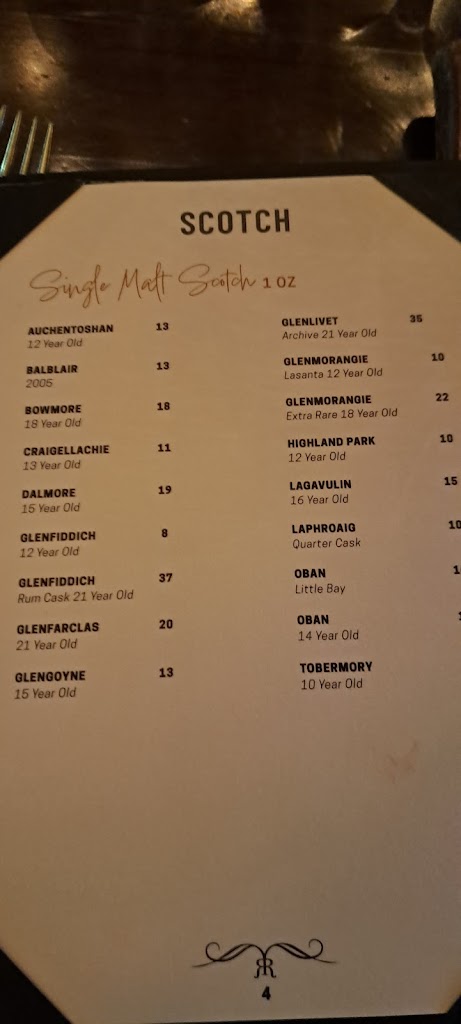 SCOTCH
Single Malt Scotch 1 OZ
AUCHENTOSHAN 13
12 Year Old
BALBLAIR 13
2005
BOWMORE 18
18 Year Old
CRAIGELLACHIE 11
13 Year Old
DALMORE 19
15 Year Old
GLENFIDDICH 8
12 Year Old
GLENFIDDICH 37
Rum Cask 21 Year Old
GLENFARCLAS 20
21 Year Old
GLENGOYNE 13
15 Year Old
GLENLIVET 35
Archive 21 Year Old
GLENMORANGIE 10
Lasanta 12 Year Old
GLENMORANGIE 22
Extra Rare 18 Year Old
HIGHLAND PARK 10
12 Year Old
LAGAVULIN 15
16 Year Old
LAPHROAIG 10
Quarter Cask
OBAN
Little Bay
OBAN
14 Year Old
TOBERMORY
10 Year Old
4